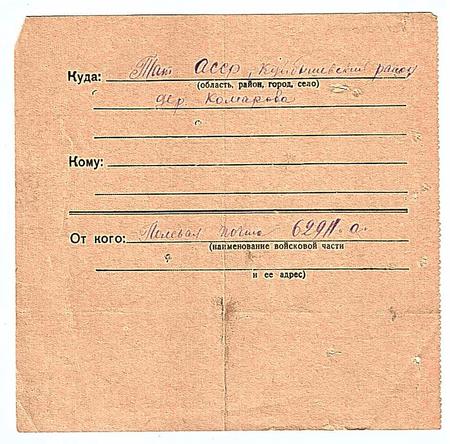 Куда: Тат АССР, Куйбышевский район
(область, район, город, село)
дер. Комарова
Кому:
От кого: Полевая почта
(наименование войсковой части
и ее адрес)